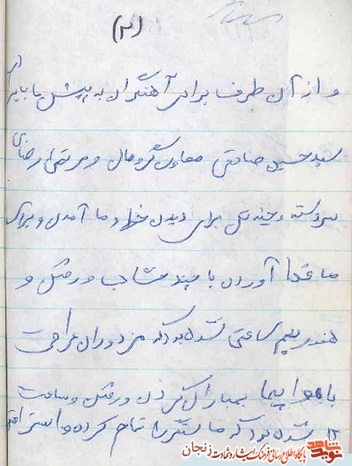 (۲)
و از آن طرف برادر آهنگران به پیش ما با برادر
سید حسین صادقی معاون گروهان و مرتضی رضائی
سردسته و چند تن برای دیدن خط و ما آمدن و برای
ما غذا آوردن با چند و رفتن و
هنوز نیم ساعتی نشده بود که مزدوران عراقی
با هواپیما بمباران کردن و رفتن و ساعت
۱۲ شده بود که ما سنگر را تمام کرده و استراحت
نوید شاهد
پایگاه اطلاع رسانی فرهنگ ایثار و شهادت زنجان